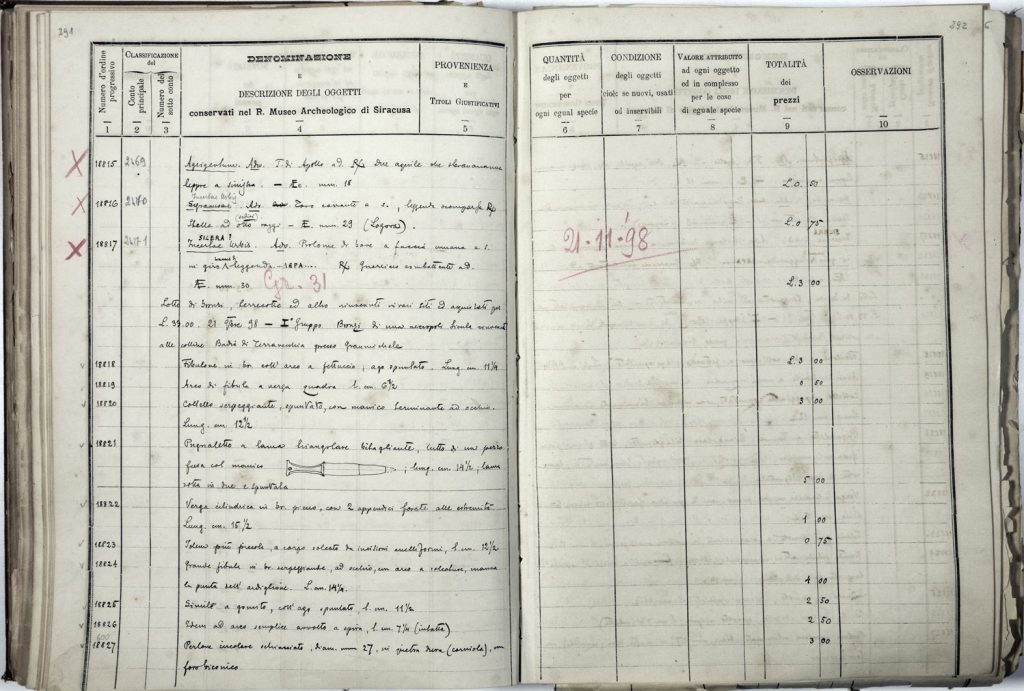 291
Numero d'ordine progressivo
CLASSIFICAZIONE del
Conto principale
Numero del sotto conto
DENOMINAZIONE
E
DESCRIZIONE DEGLI OGGETTI
conservati nel R. Museo Archeologico di Siracusa
PROVENIENZA
E
TITOLI GIUSTIFICATIVI
1 2 3 4 5
18815 2469 Agrigentum. Adv. T. di Apollo a d. R/ Due aquile che
lepre a sinistra. — Æ. mm. 18
Incertae Urbis
18816 2470 Syracusae. Adv. Toro cozzante a s., leggenda R/
Stella ad otto raggi — Æ. mm. 29 (Logora).
SILERA?
18817 2471 Incertae Urbis. Adv. Protome di bove a faccia umana a s.
in giro leggenda R/ Guerriero combattente a d.
Æ. mm. 30 Cgr. 31
Lotto di bronzi, terrecotte ed altro rinvenuti in vari siti ed acquistati per
L. 33.00. 21 9bre 98 — I° Gruppo. Bronzi di una necropoli sicula rinvenuta
alle colline Badia di Terravecchia presso Grammichele
18818 Fibulone in br. coll'arco a fettuccia, ago spuntato. Lung. cm. 11 1/4
18819 Arco di fibula a verga quadra l. cm. 6 1/2
18820 Coltello serpeggiante, spuntato, con manico terminante ad occhio.
Lung. cm. 12 1/2
18821 Pugnaletto a lama triangolare bitagliente, tutto di un pezzo
fuso col manico ; lung. cm. 14 1/2; lama
rotta in due e spuntata
18822 Verga cilindrica in br. pieno, con 2 appendici forate alle estremità
Lung. cm. 15 1/2
18823 Idem più piccola, a corpo solcato da incisioni anelliformi, l. cm. 12 1/2
18824 Grande fibula in br. serpeggiante, ad occhio, con arco a scanalature, manca
la punta dell'ardiglione. L. cm. 14 1/4
18825 Simile a gomito, coll'ago spuntato. l. cm. 11 1/2
18826 Idem ad arco semplice avvolto a spira, l. cm. 7 1/4 (intatta)
18827 Perlone circolare schiacciato, diam. mm 27, in pietra dura (corniola), con
foro biconico
292
QUANTITÀ
degli oggetti
per
ogni egual specie
CONDIZIONE
degli oggetti
cioè: se nuovi, usati
od inservibili
VALORE ATTRIBUITO
ad ogni oggetto
ed in complesso
per le cose
di eguale specie
TOTALITÀ
dei
prezzi
OSSERVAZIONI
6 7 8 9 10
L. 0 50
L. 0 75
SILERA
21 · 11 · 98
L. 3 00
L. 3 00
0 50
3 00
5 00
1 00
0 75
4 00
2 50
2 50
3 00